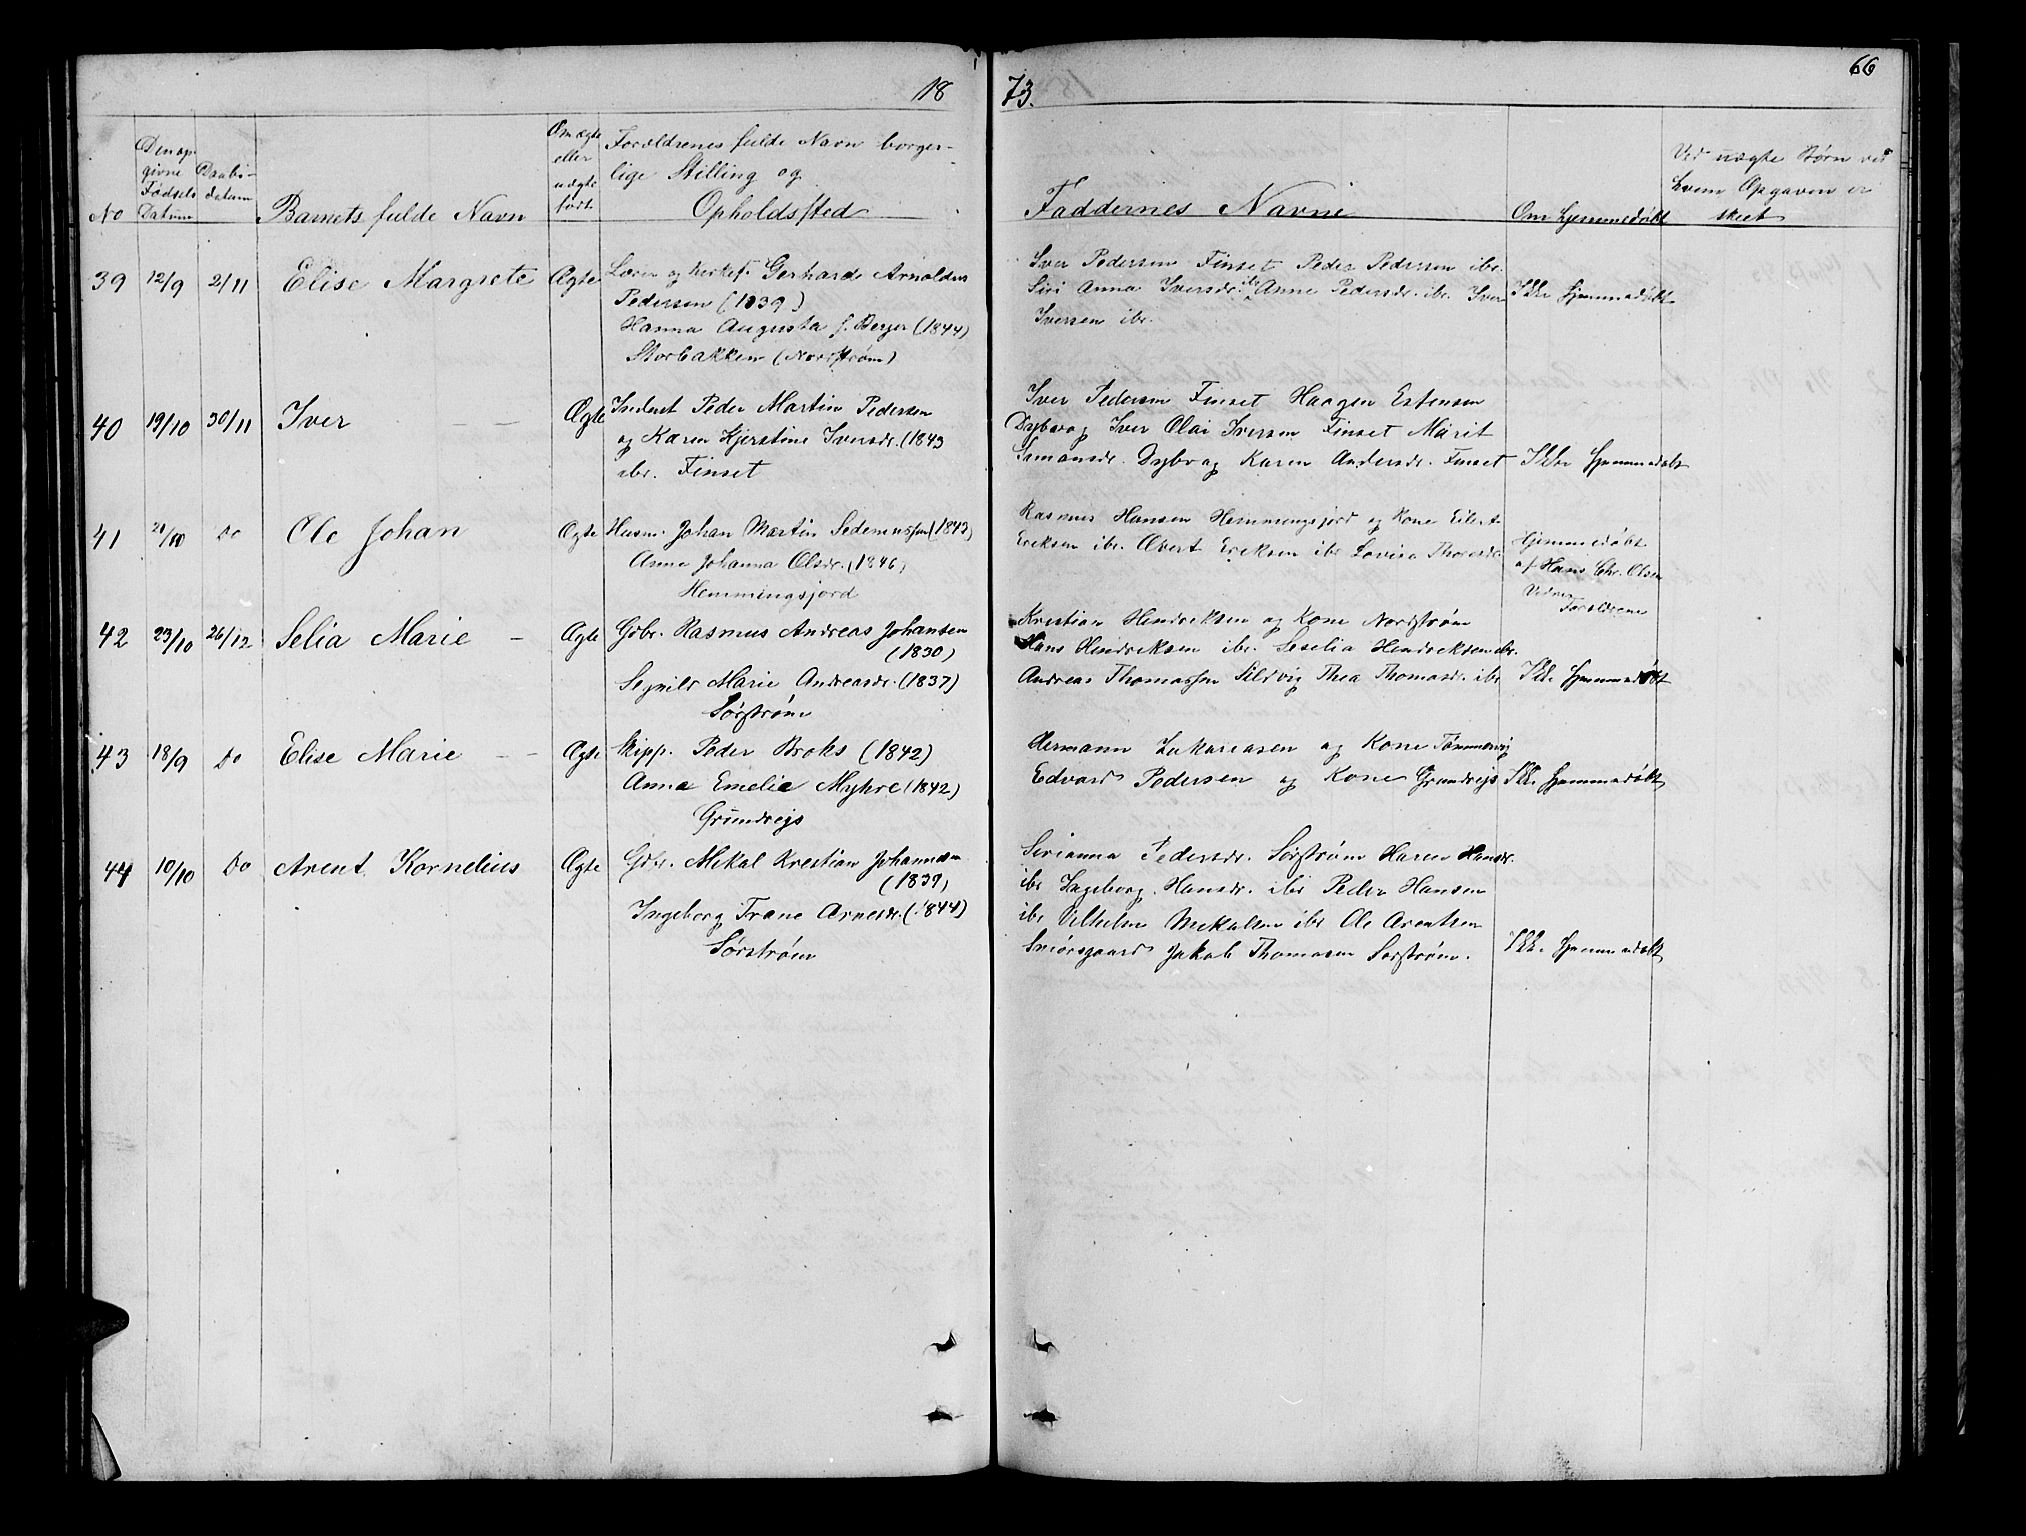 1873.
66
No
Den op-
givne
Fødsels
Datum
Daabs-
datum
Barnets fulde Navn
Om ægte
eller
uægte
født.
Forældrenes fulde Navn borger-
lige Stilling og
Opholdssted
Faddernes Navne
Om hjemmedøbt
Ved uægte Børn ved
hvem Opgaven er
skeet
39 12/9 2/11 Elise Margrete Ægte
Lærer og Kirkes. Gerhard Arnoldus
Pedersen (1839)
Hanna Augusta f. Berger (1844)
Storbakken (Nordstrøm)
Iver Pedersen Finset Peder Pedersen ibr.
Siri Anna Iversdr. ibr Anne Pedersdr. ibr. Iver
Iversen ibr.
Ikke hjemmedøbt
40 19/10 30/11 Iver Ægte
Inderst Peder Martin Pedersen
og Karen Kjerstine Iversdr. (1843
ibr. Finset
Iver Pedersen Finset Haagen Estensen
Dybvog Iver Olai Iversen Finset Marit
Dybvog Karen Andersdr. Finset
Ikke hjemmedøbt
41 Do Ole Johan Ægte
Husm. Johan Martin (1843)
Anna Johanna Olsdr. (1846)
Hemmingsjord
Rasmus Hansen Hemmingsjord og Kone Eilert
Eriksen ibr. Evert Eriksen ibr Lovisa
Hjemmedøbt
af Hans Chr. Olsen
Vidner
Forældrene
42 23/10 26/12 Selia Marie Ægte
Gdbr. Rasmus Andreas Johansen
(1830)
Marie Andreasdr. (1837)
Sørstrøm
Kristian Hendriksen og Kone Nordstrøm
Hans Hendriksen ibr. Seselia Hendriksen ibr.
Andreas Thomassen Sildvig Thea Thomasdr. ibr
Ikke hjemmedøbt
43 18/9 Do Elise Marie Ægte
Skipp. Peder Broks (1842)
Anna Emelie Myhre (1842)
Grundvigs
Hermann Zakariasen og Kone Tømmervig
Edvard Pedersen og Kone Grundvigs
Ikke hjemmedøbt
44 10/10 Do Arent Kornelius Ægte
Gdbr. Mikal Krestian Johannsen
(1839)
Ingeborg Trane Arnesdr. (1844)
Sørstrøm
Sirianna Pedersdr. Sørstrøm Karen Hansdr.
ibr Ingeborg Hansdr. ibr Peder Hansen
ibr Vilhelm Mekalsen ibr Ole Arentsen
Sniorsgaard Jakob Thomasen Sørstrøm.
Ikke hjemmedøbt